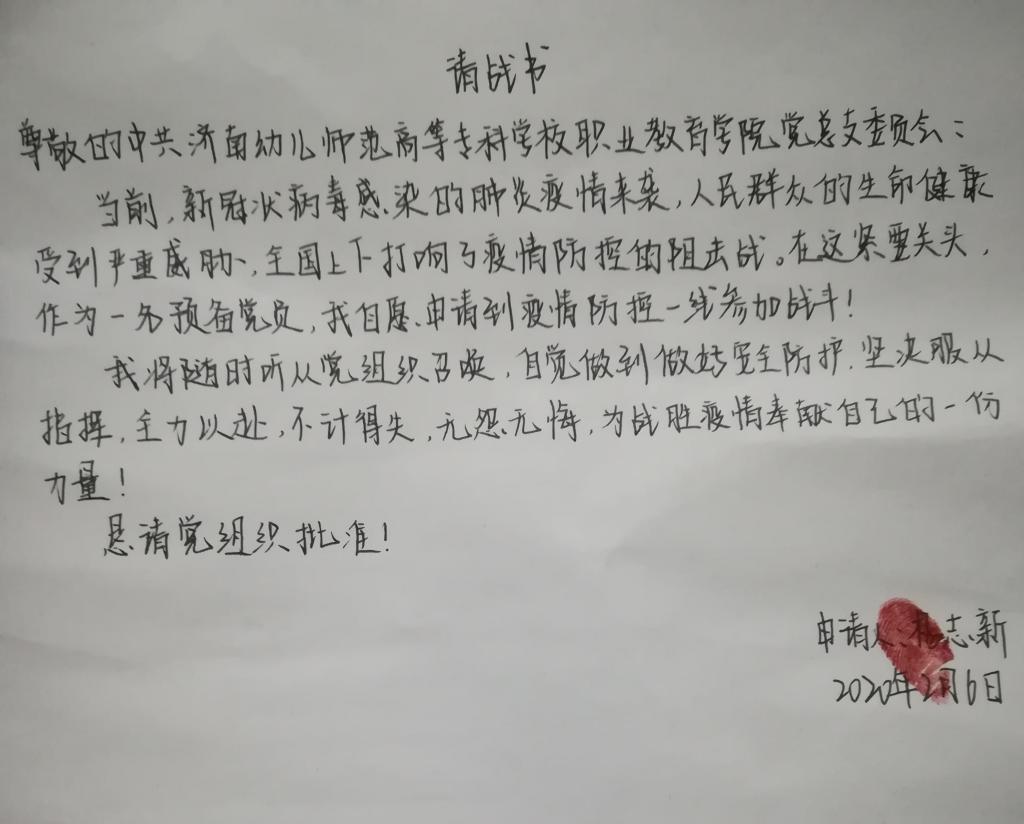 请战书
尊敬的中共济南幼儿师范高等专科学校职业教育学院党总支委员会：
当前，新冠状病毒感染的肺炎疫情来袭，人民群众的生命健康
受到严重威胁，全国上下打响了疫情防控的阻击战。在这紧要关头，
作为一名预备党员，我自愿申请到疫情防控一线参加战斗！
我将随时听从党组织召唤，自觉做到做好安全防护，坚决服从
指挥，全力以赴，不计得失，无怨无悔，为战胜疫情奉献自己的一份
力量！
恳请党组织批准！
申请人：志新
2020年2月6日